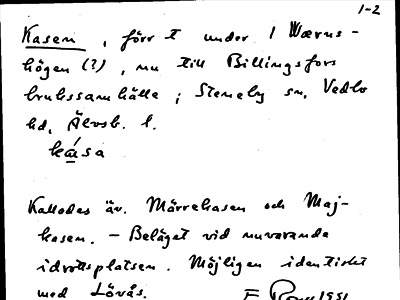 1-2
Kasen, förr t under 1 Wærns-
högen (?), nu till Billingsfors
brukssamhälle; Steneby sn, Vedbo
hd, Älvsb. l.
kása
Kallades äv. Märrekasen och Maj-
kasen. – Beläget vid nuvarande
idrottsplatsen. Möjligen identiskt
med Lövås. 1951